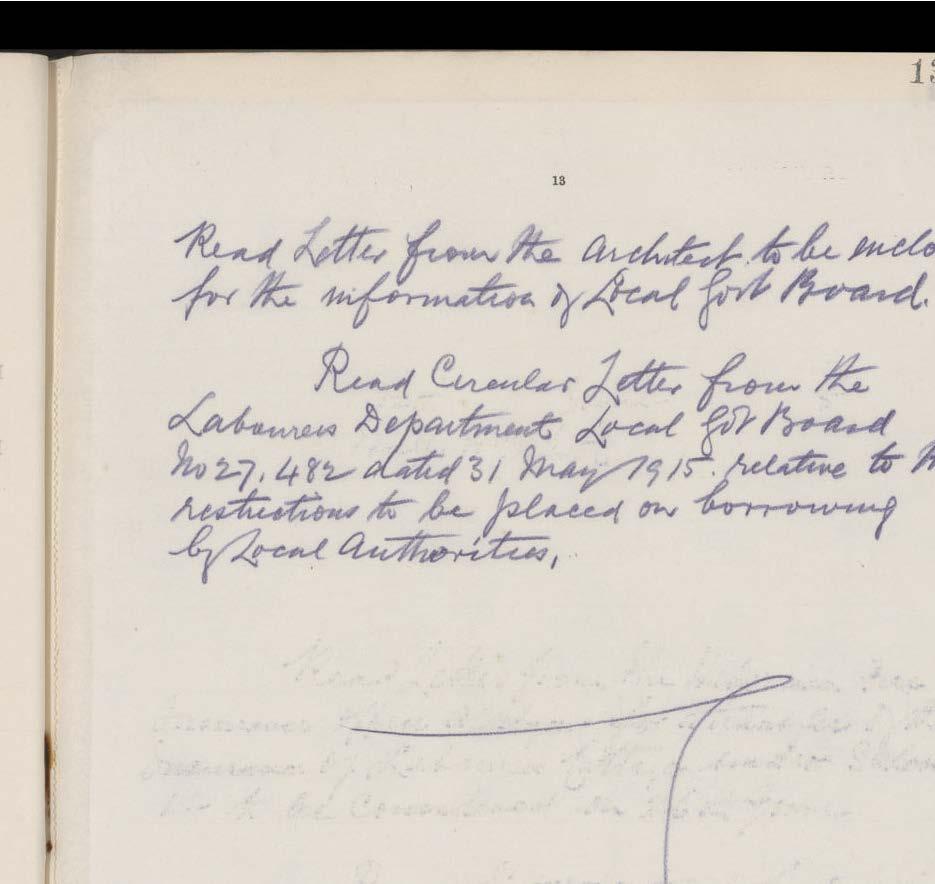 13
13
Read Letter from the Architect to be enclo
for the information of Local Govt Board.
Read Circular Letter from the
Labourers Department Local Govt Board
No 27,482 dated 31 May 1915. relative to
restrictions to be placed on borrowing
by Local Authorities,